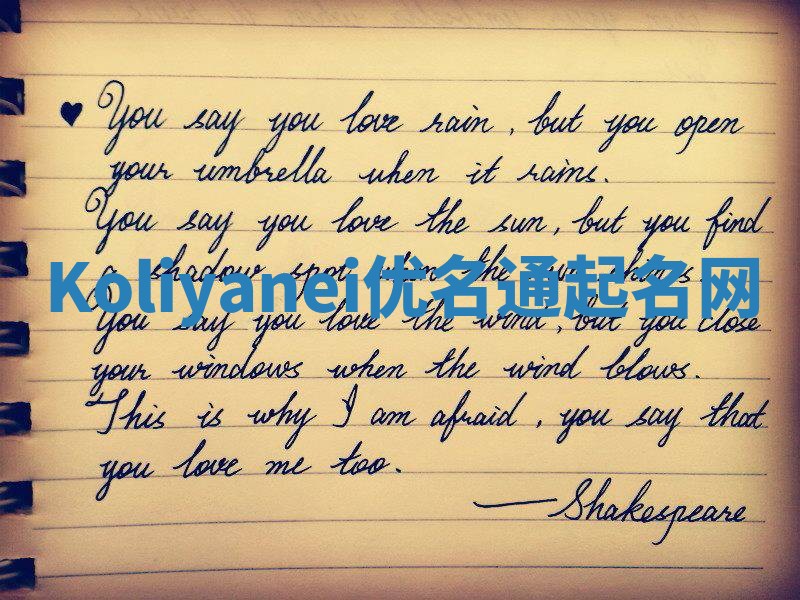 ♥ You say you love rain, but you open
your umbrella when it rains.
You say you love the sun, but you find
a shadow spot when the sun shines.
Koliyanei优名通起名网
You say you love the wind, but you close
your windows when the wind blows.
This is why I am afraid, you say that
you love me too.
—Shakespeare